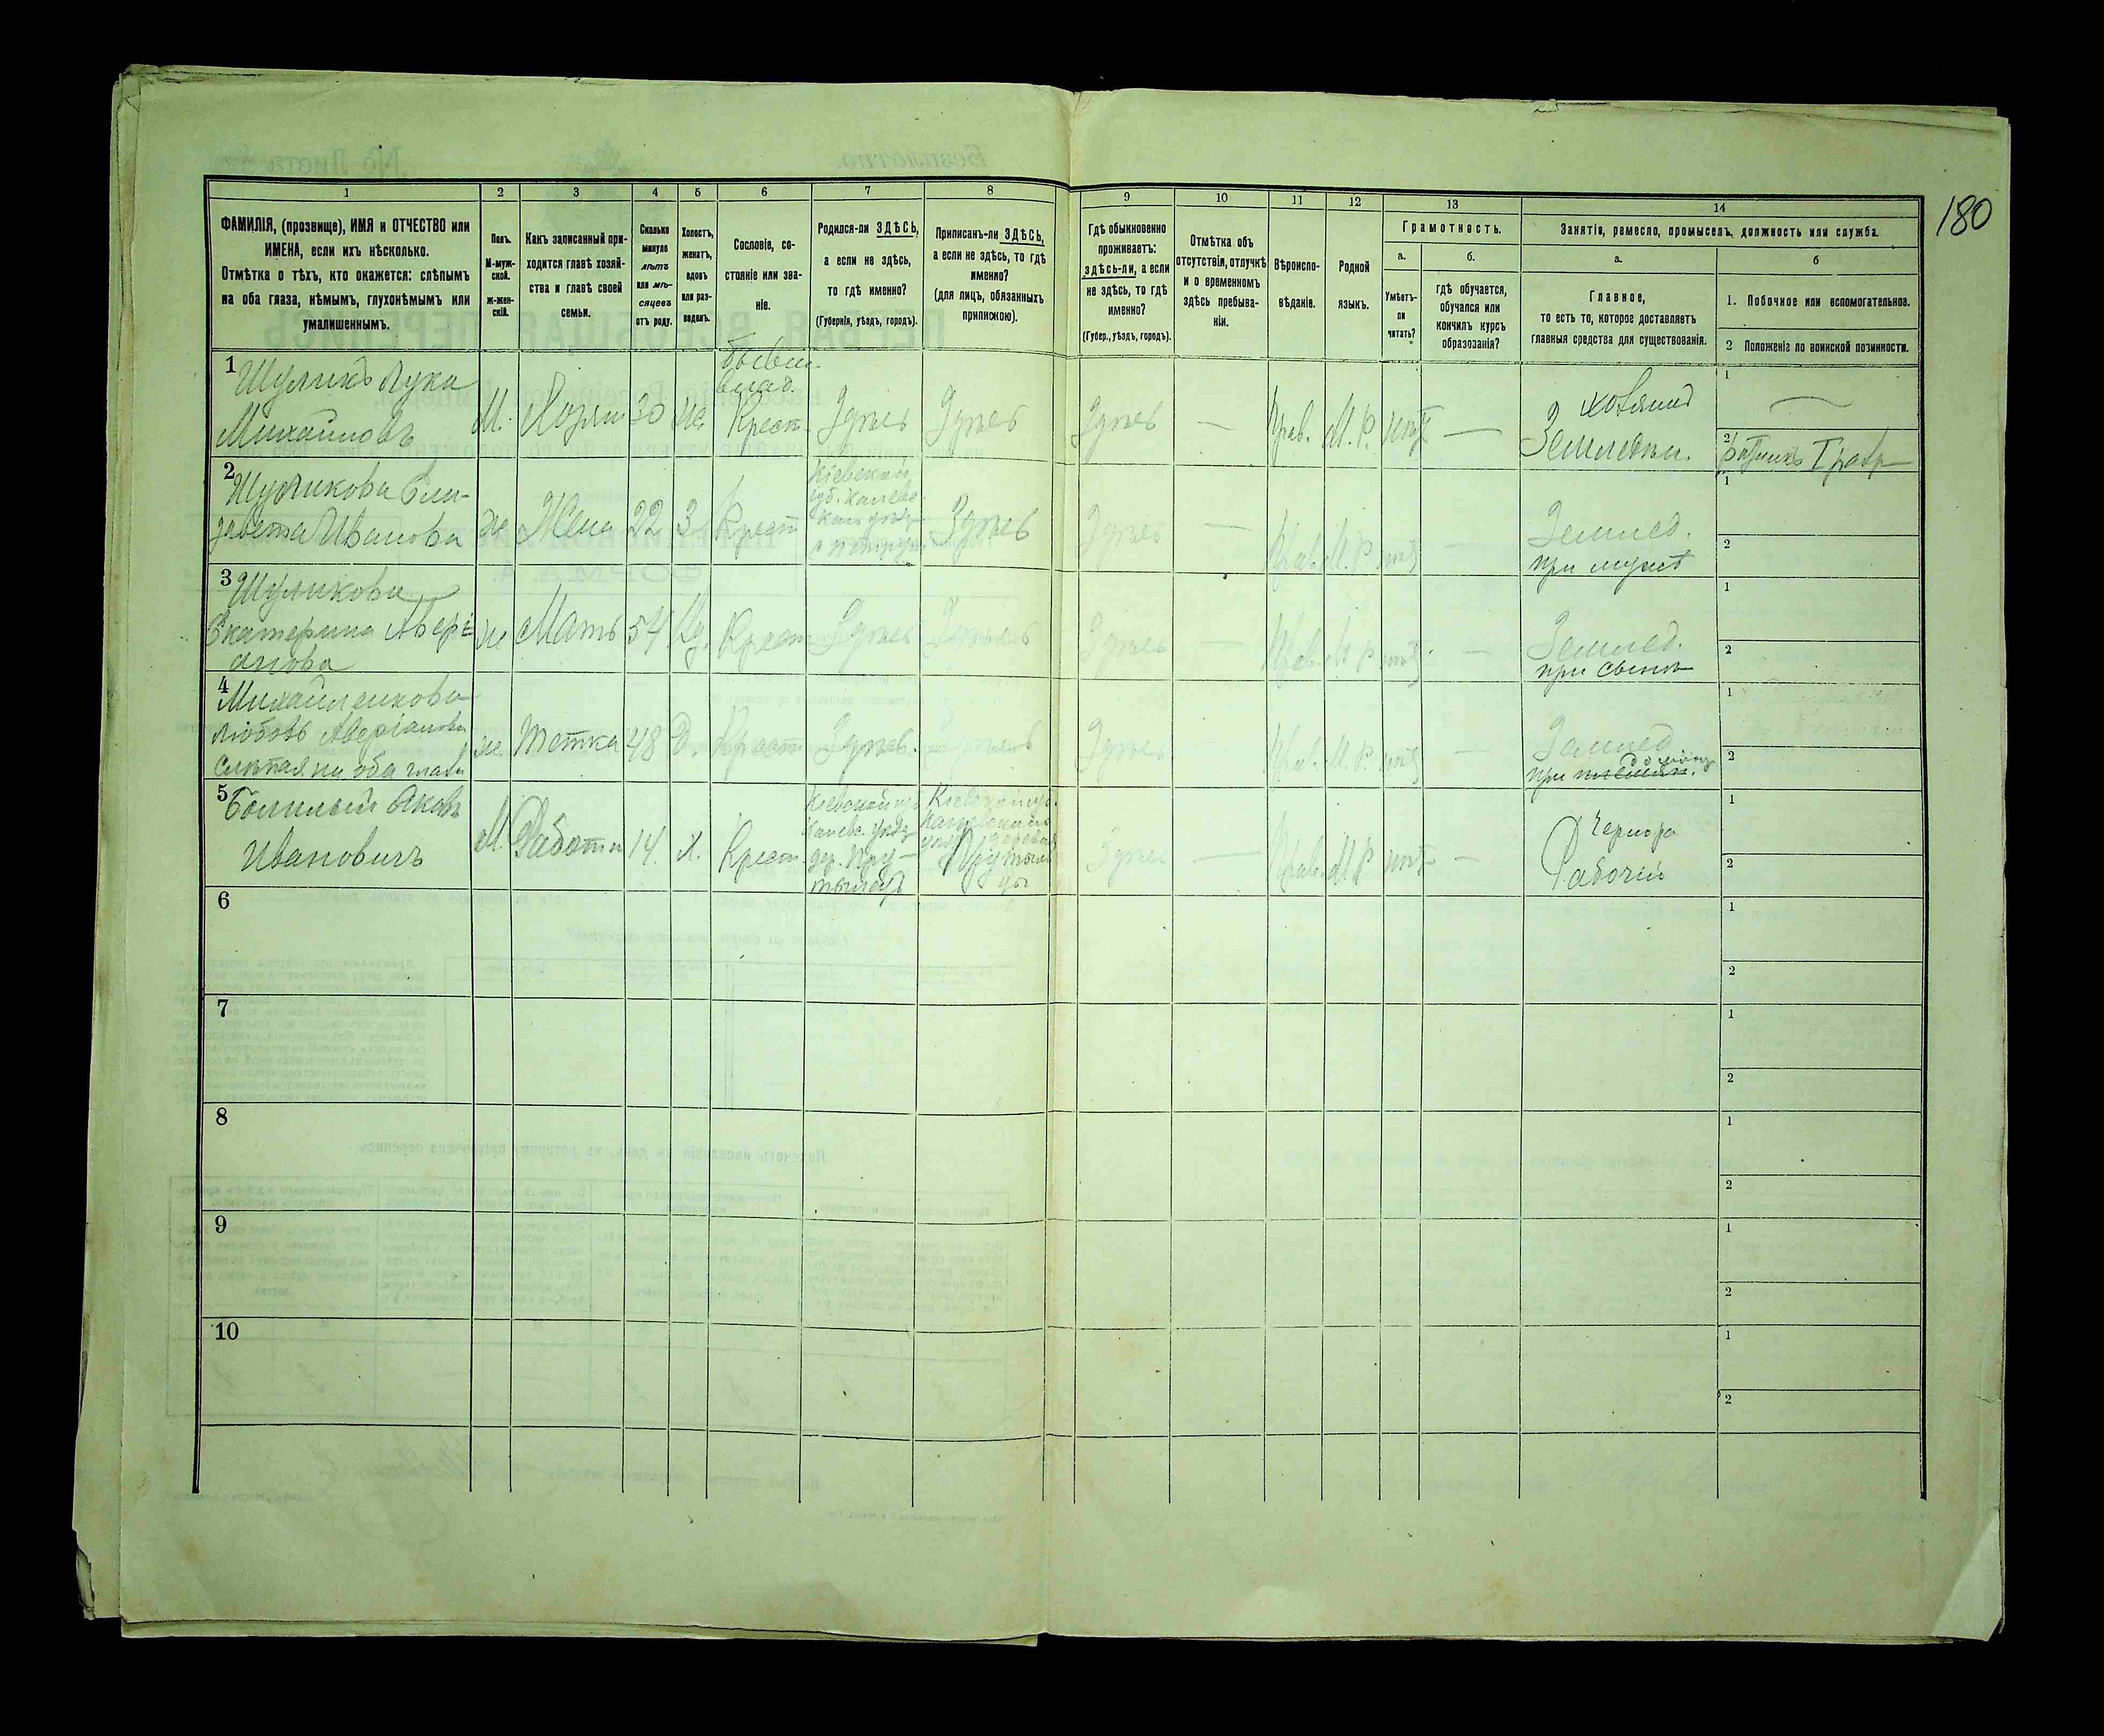 180
1
2
3
4
5
6
7
8
9
10
11
12
13
14
ФАМИЛІЯ, (прозвище), ИМЯ и ОТЧЕСТВО или
ИМЕНА, если ихъ нѣсколько.
Отмѣтка о тѣхъ, кто окажется: слѣпымъ
на оба глаза, нѣмымъ, глухонѣмымъ или
умалишеннымъ.
Полъ.
М-муж-
ской.
ж-жен-
скій.
Какъ записанный при-
ходится главѣ хозяй-
ства и главѣ своей
семьи.
Сколько
минуло
лѣтъ
или мѣ-
сяцевъ
отъ роду.
Холостъ,
женатъ,
вдовъ
или раз-
веденъ.
Сословіе, со-
стояніе или зва-
ніе.
Родился-ли ЗДѢСЬ,
а если не здѣсь,
то гдѣ именно?
(Губернія, уѣздъ, городъ).
Приписанъ-ли ЗДѢСЬ,
а если не здѣсь, то гдѣ
именно?
(для лицъ, обязанныхъ
припискою).
Гдѣ обыкновенно
проживаетъ:
здѣсь-ли, а если
не здѣсь, то гдѣ
именно?
(Губер., уѣздъ, городъ).
Отмѣтка объ
отсутствіи, отлучкѣ
и о временномъ
здѣсь пребыва-
ніи.
Вѣроиспо-
вѣданіе.
Родной
языкъ.
Грамотность.
а.
Умѣетъ-
ли
читать?
б.
гдѣ обучается,
обучался или
кончилъ курсъ
образованія?
Занятіе, ремесло, промыселъ, должность или служба.
а.
Главное,
то есть то, которое доставляетъ
главныя средства для существованія.
б
1. Побочное или вспомогательное.
2 Положеніе по воинской повинности.
1
Шуликъ Лука
Михайловъ
М. Хозяин 30 же.
бывш.
влад.
Крест.
Здѣсь Здѣсь Здѣсь — Прав. М. Р. нѣт —
хозяинъ
Земледѣл.
1
2
2
Шуликова Ели-
завета Иванова
ж Жена 22 З. Крест
Кіевской
губ. Канев.
Здѣсь Здѣсь — Прав. М. Р нѣт —
Землед.
при мужѣ
1
2
3
Шуликова
Екатерина Авері-
анова
ж Мать 54 Вд. Крест Здѣсь Здѣсь Здѣсь — Прав. М. Р нѣт —
Землед.
при сынѣ
1
2
4
Михайленкова
Любовь Аверіанова
слѣпая на оба глаза
ж. Тетка 48 Д. Крест Здѣсь. Здѣсь Здѣсь — Прав. М. Р. нѣт —
Землед
при
1
2
5
Яковъ
Ивановичъ
М. Работн 14. х. Крест.
Кіевской губ.
Канев. уѣзд
дер.
Кіевской губ.
Каневскаго
Здѣсь — Прав. М. Р нѣт —
Чернора
Рабочій
1
2
6
1
2
7
1
2
8
1
2
9
1
2
10
1
2